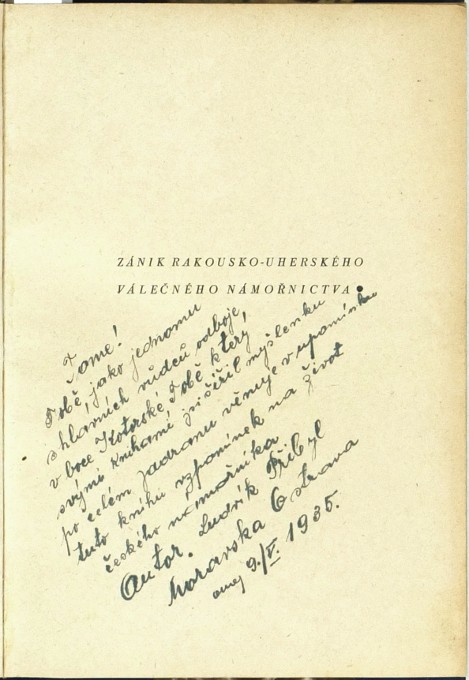 ZÁNIK RAKOUSKO-UHERSKÉHO
VÁLEČNÉHO NÁMOŘNICTVA.
Tome!
Tobě, jako jednomu
z hlavních vůdců odboje,
v boce Kotorské Tobě, který
svými knihami jsi šířil myšlenku
po celém Jadranu věnuje v upomínku
tuto knihu vzpomínek na život
českého námořníka
Autor. Ludvík Přibyl
Moravska Ostrava
9./V. 1935.